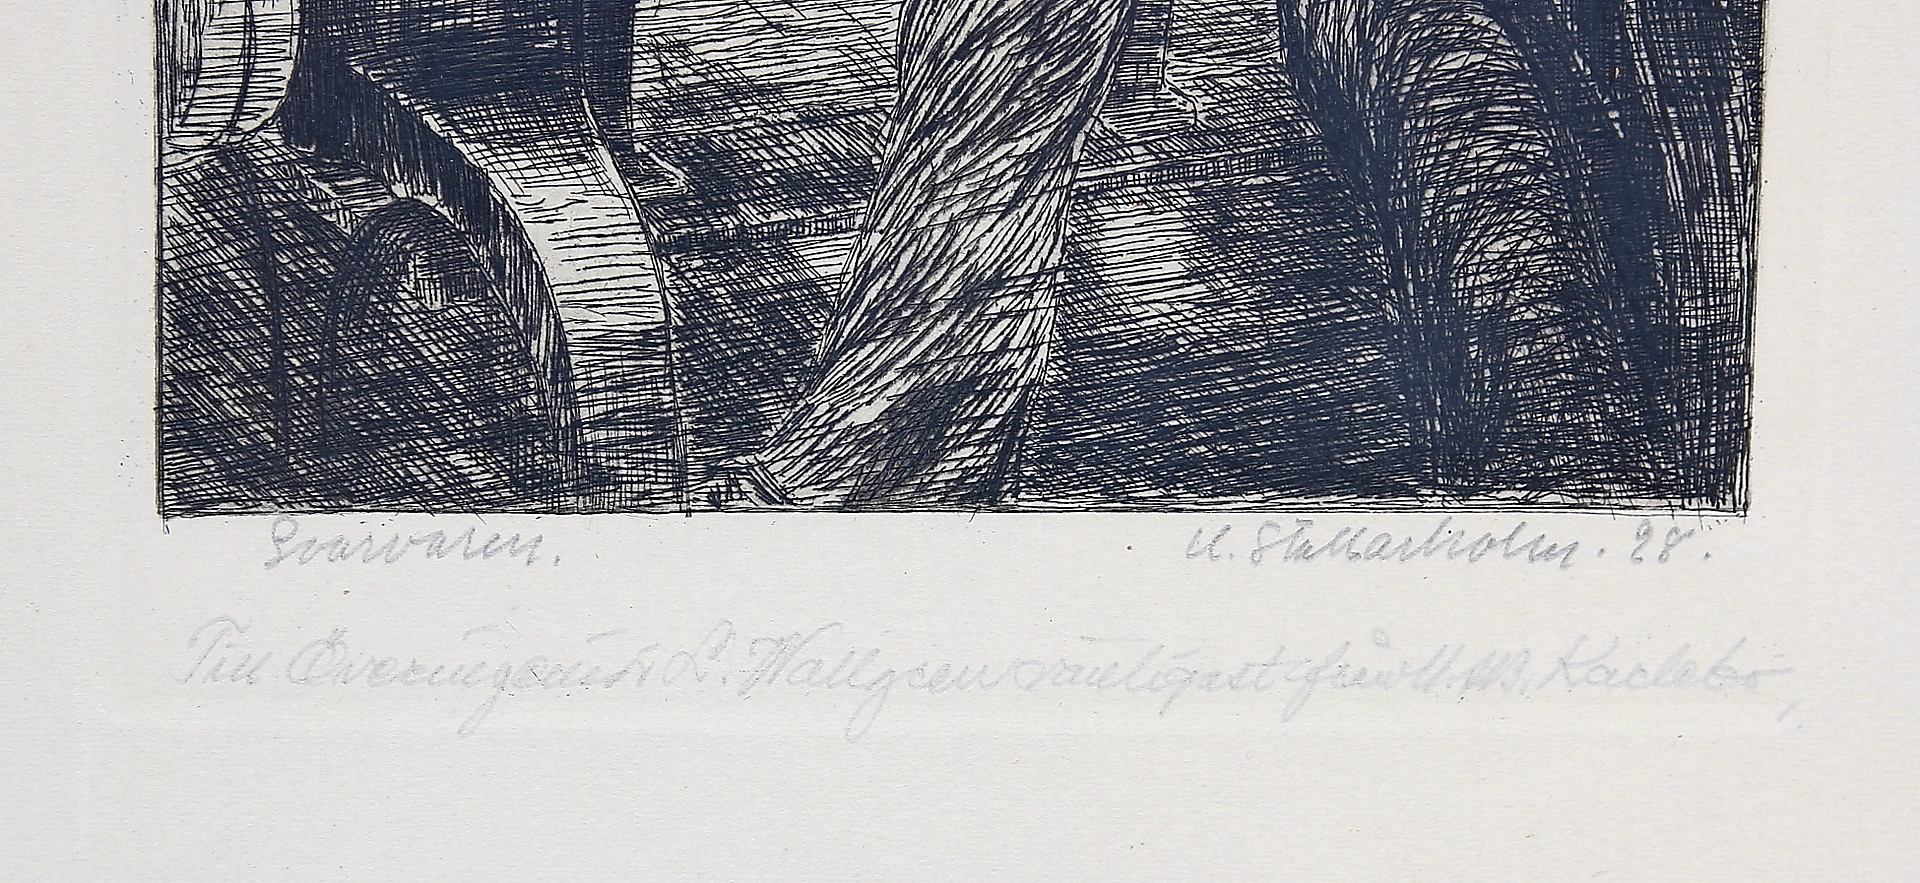 Svarvaren.
K. Stellarholm. 28.
Till Överingeniör L. Wallgren vänligast från